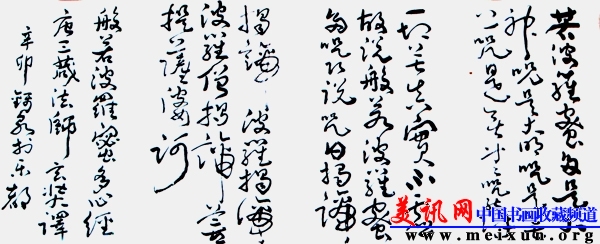 若波羅蜜多是大
神呪是大明呪是無
上呪是無等等呪能除
一切苦真實不虛
故說般若波羅蜜
多呪即說呪曰揭諦
揭諦波羅揭諦
波羅僧揭諦菩
提薩婆訶
般若波羅蜜多心經
唐三藏法師玄奘譯
辛卯
美讯网中国书画收藏频道
www.meixuw.org